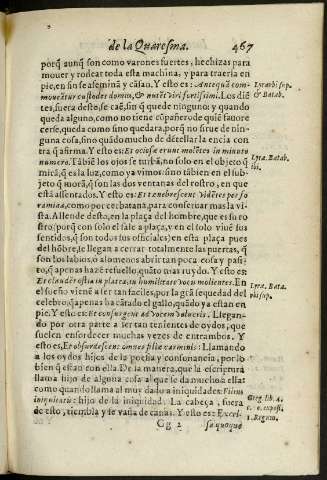 de la Quaresma. 467
porq̃ aunq̃ son como varones fuertes, hechizas para
mouer y rodear toda esta machina, y para traerla en
pie, en fin se
y cãsan. Y esto es: Antequã com-
moueãtur custodes domus, & nutẽt viri fortissimi. Los diẽ-
tes, fuera deste, se caẽ, sin q̃ quede ninguno: y quando
queda alguno, como no tiene cõpañero de quiẽ fauore
cerse, queda como sino quedara, porq̃ no sirue de nin-
guna cosa, sino quãdo mucho de
la encia con
tra q̃ afirma. Y esto es: Et ociosæ erunt molẽtes in minuto
numero. Tãbiẽ los ojos se turbã, no solo en el objeto q̃
mirã, q̃ es la luz, como ya vimos: sino tãbien en el sub-
jeto q̃ morã, q̃ son las dos ventanas del rostro, en que
està assentados. Y esto es: Et tenebrescent vidẽtes per fo
ramina, como por cerbatana, para conseruar mas la vi-
sta. Allende desto, en la plaça del hombre, que es su ro
stro (porq̃ con solo el sale a plaça, y en el solo viuẽ sus
sentidos, q̃ son todos sus oficiales) en esta plaça pues
del hõbre, se llegan a cerrar totalmente las puertas, q̃
son los labios, o alomenos abrir tan poca cosa y pas
ro, q̃ apenas hazẽ resuello, quãto mas ruydo. Y esto es:
Et claudẽt ostia in platea, in humilitate vocis molentis. En
el sueño vienẽ a ser tan faciles, por la grã sequedad del
celebro, q̃ apenas ha cãtado el gallo, quãdo ya estan en
pie. Y esto es: Et consurgent ad vocem volucris. Llegan-
do por otra parte a ser tan tenientes de oydos, que
suelen ensordecer muchas vezes de entrambos. Y
esto es: Et obsurdescent omnes filiæ carminis: Llamando
a los oydos hijos de la poesia y consonancia, por lo
bien q̃ estan con ella. De la manera, que la escriptura
llama hijo de alguna cosa al que se da mucho a ella:
como quando llama al muy dado a iniquidades: Filius
iniquitatis: hijo de la iniquidad. La cabeça, fuera
de esto, tiembla y se vaña de canas. Y esto es: Excel-
Gg 2 sa quoque
Lyra ibi sup.
& Batab.
Lyra. Batab.
ibi.
Lyra. Bata.
ibi sup.
Greg. lib. 4.
c. 0. exposi.
1. Regum.